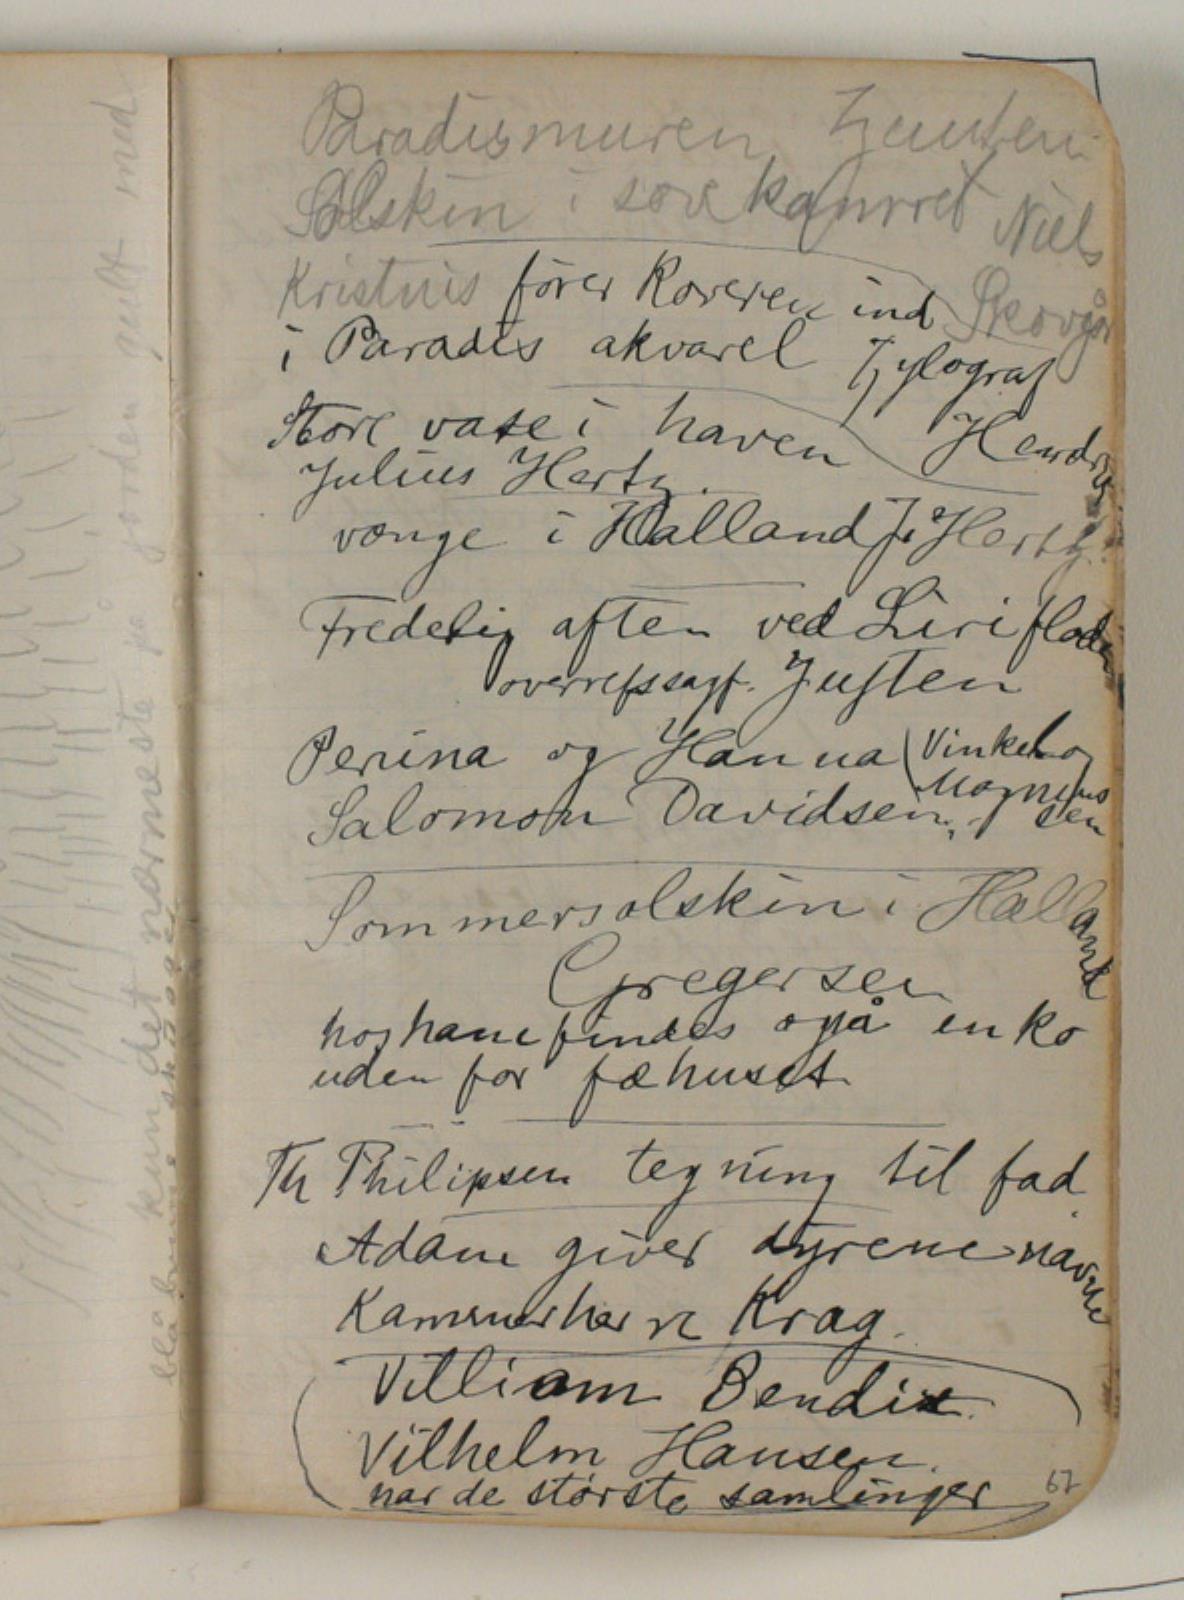 Paradismuren
Solskin i sovekamret Niels
Skovgår
Kristus förer Roveren ind
i Paradis akvarel Xylograf
Hendri
Store vase i haven
Julius Hertz.
vænge i Halland J. Hertz.
Fredelig aften ved Liri floden
overretssagf. Justen
Perina og Hanna (Vinkel og
Magnussen
Salomon Davidsen
Sommersolskin i Halland
Gregersen
hos ham findes også en ko
uden for fæhuset
Th Philipsen tegning til fad
Adam giver dyrene navne
Kammerherre Krag.
Villiam Bendix.
Vilhelm Hansen.
har de störste samlinger
67
kun det nærmeste på jorden gult med
blå bund skoven